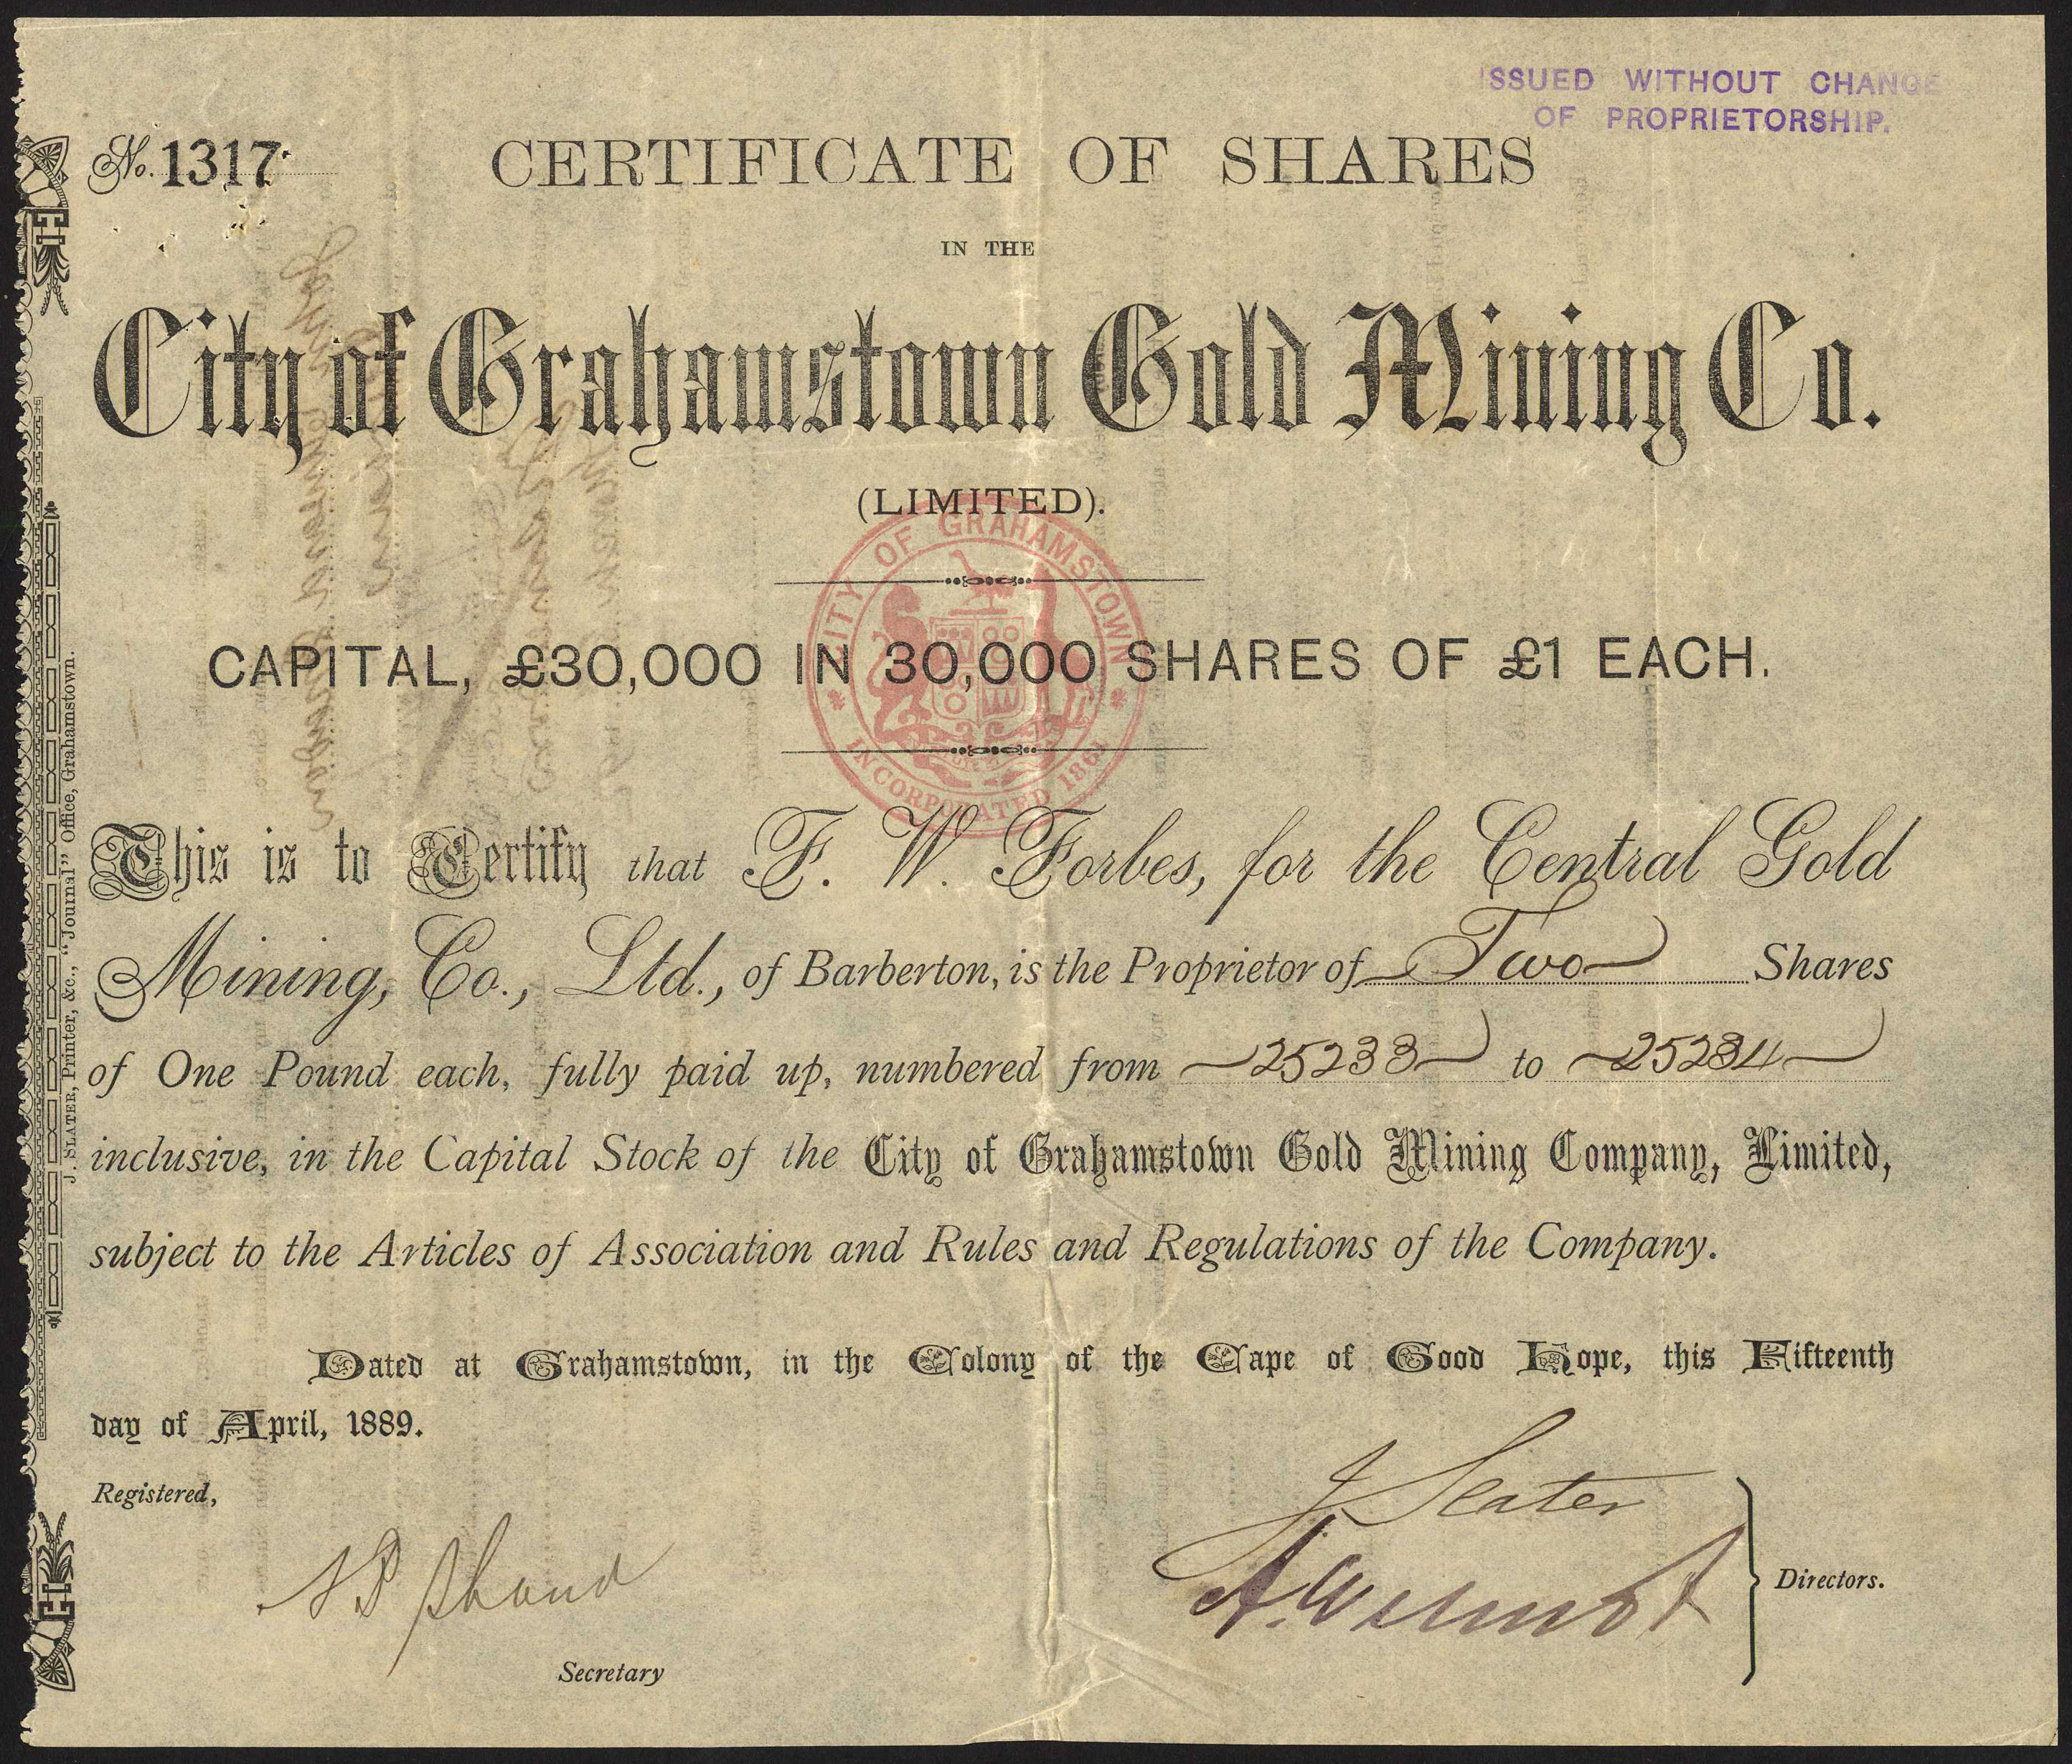 ISSUED WITHOUT CHANGE
OF PROPRIETORSHIP.
No. 1317
CERTIFICATE OF SHARES
IN THE
City of Grahamstown Gold Mining Co.
(LIMITED).
CITY OF GRAHAMSTOWN
INCORPORATED 1862
CAPITAL, £30,000 IN 30,000 SHARES OF £1 EACH.
This is to Certify that F. W. Forbes, for the Central Gold
Mining, Co., Ltd., of Barberton, is the Proprietor of Two Shares
of One Pound each, fully paid up, numbered from 25233 to 25234
inclusive, in the Capital Stock of the City of Grahamstown Gold Mining Company, Limited,
subject to the Articles of Association and Rules and Regulations of the Company.
Dated at Grahamstown, in the Colony of the Cape of Good Hope, this Fifteenth
day of April, 1889.
Registered,
J Slater
Shand
A. Wilmot
Directors.
Secretary
J. SLATER, Printer, &c., "Journal" Office, Grahamstown.